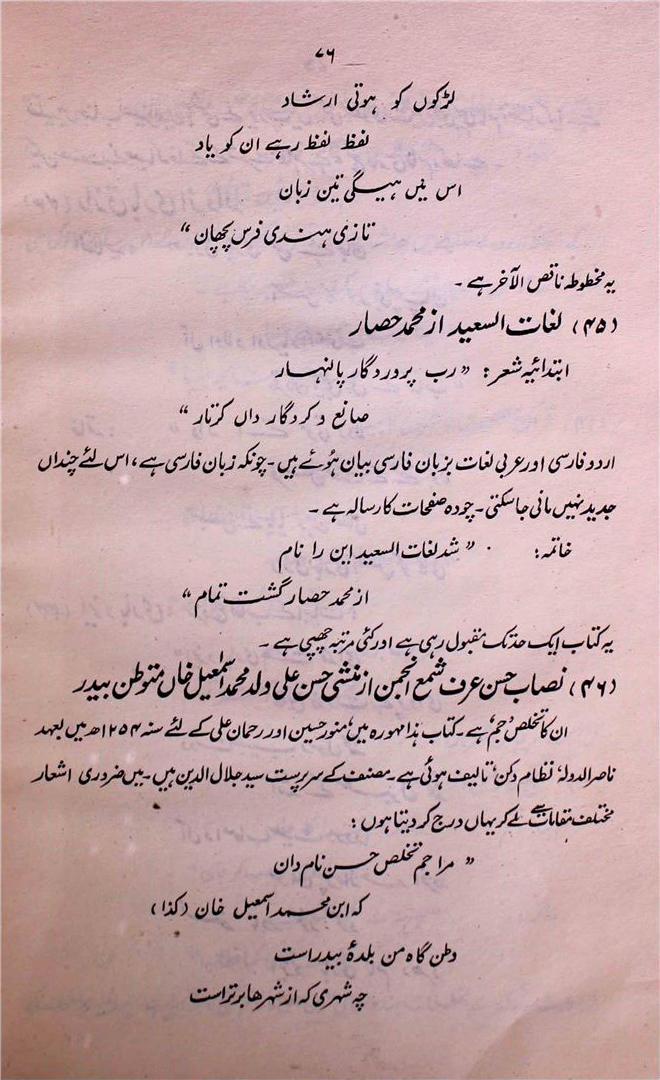 ۷۶
لڑکوں کو ہوتی ارشاد
لفظ لفظ رہے ان کو یاد
اس میں ہیگی تین زبان
تازی ہندی فرس پچھان“
یہ مخطوطہ ناقص الآخر ہے۔
(۴۵) لغات السعید از محمد حصار
ابتدائیہ شعر: ”رب پروردگار پالنہار
صانع و کردگار داں کرتار“
اردو فارسی اور عربی لغات بزبان فارسی بیان ہوئے ہیں۔ چونکہ زبان فارسی ہے، اس لئے چنداں
جدید نہیں مانی جا سکتی۔ چودہ صفحات کا رسالہ ہے۔
خاتمہ: ”شد لغات السعید این را نام
از محمد حصار گشت تمام“
یہ کتاب ایک حد تک مقبول رہی ہے اور کئی مرتبہ چھپی ہے۔
(۴۶) نصاب حسن عرف شمع انجمن از منشی حسن علی ولد محمد اسمٰعیل خاں متوطن بیدر
ان کا تخلص ’جم‘ ہے۔ کتاب ہذا مہورہ میں منور حسین اور رحمان علی کے لئے سنہ ۱۲۵۴ھ میں بعہد
ناصر الدولہ ’نظام دکن‘ تالیف ہوئی ہے۔ مصنف کے سرپرست سید جلال الدین ہیں۔ میں ضروری اشعار
مختلف مقامات سے لے کر یہاں درج کر دیتا ہوں:
”مرا جم تخلص حسن نام دان
کہ ابن محمد اسمعیل خان (کذا)
وطن گاہ من بلدۂ بیدر است
چہ شہری کہ از شہرہا برتر است